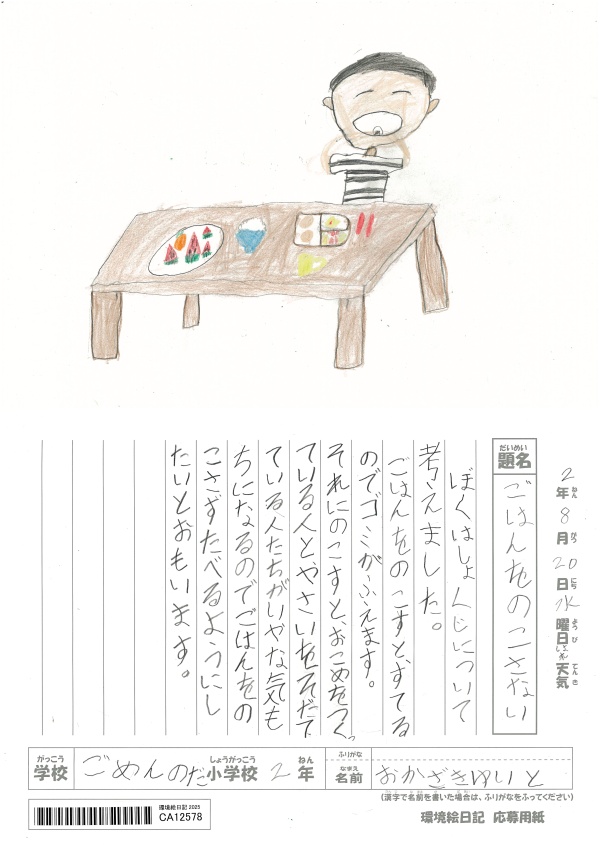 2年8月20日水曜日天気
ねん がつ にち ようび てんき
だいめい
題名 ごはんをのこさない
ぼくはしょくじについて
考えました。
ごはんをのこすと、すてる
のでゴミがふえます。
それにのこすと、おこめをつくっ
ている人とやさいをそだて
ている人たちがいやな気も
ちになるのでごはんをの
こさずたべるようにし
たいとおもいます。
がっこう しょうがっこう ねん ふりがな
学校 ごめんのだ小学校 2年 なまえ 名前 おかざきゆいと
(漢字で名前を書いた場合は、ふりがなをふってください)
環境絵日記 2025
CA12578
環境絵日記 応募用紙